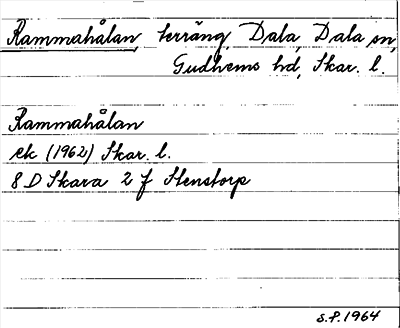 Rammahålan, terräng, Dala, Dala sn,
Gudhems hd, Skar. l.
Rammahålan
ek (1962) Skar. l.
8 D Skara 2 f Stenstorp
S.F. 1964